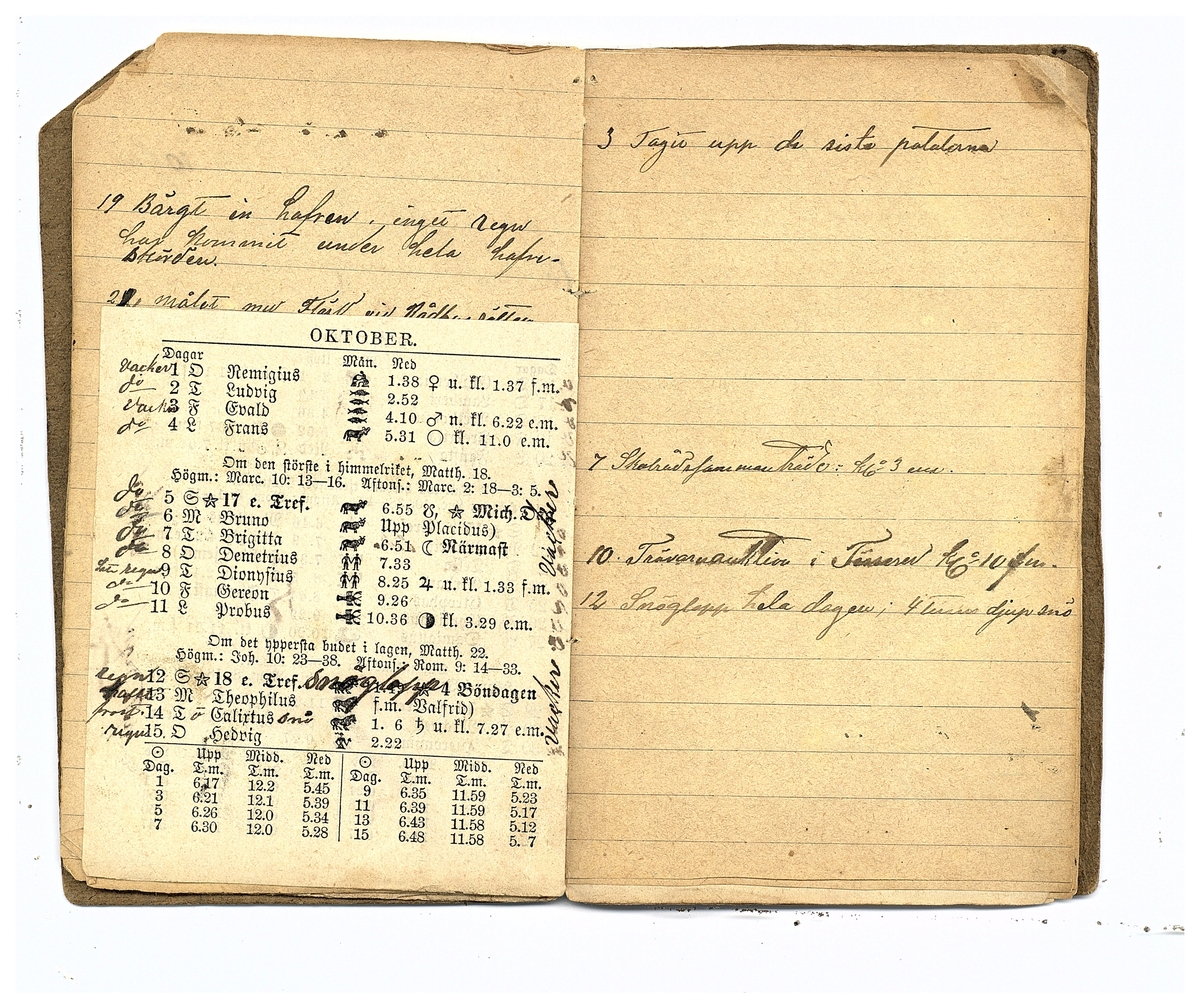 19 Bårgt in hafren, inget regn
har kommit under hela hafre-
skörden.
målat med
OKTOBER.
Dagar Mån. Ned
vacker 1 O Remigius 1.38 ♀ u. kl. 1.37 f.m.
do 2 T Ludvig 2.52
vacker 3 F Evald 4.10 ♂ n. kl. 6.22 e.m.
do 4 L Frans 5.31 ○ kl. 11.0 e.m.
Om den störste i himmelriket, Matth. 18.
Högm.: Marc. 10: 13—16. Aftons.: Marc. 2: 18—3: 5.
do 5 S ☆ 17 e. Tref. 6.55 ☋, ☆ Mich. D.
do 6 M Bruno Upp Placidus)
do 7 T Brigitta 6.51 ☾ Närmast
do 8 O Demetrius 7.33
regn 9 T Dionysius 8.25 ♃ u. kl. 1.33 f.m.
do 10 F Gereon 9.26
do 11 L Probus 10.36 ◑ kl. 3.29 e.m.
vackre
Om det yppersta budet i lagen, Matth. 22.
Högm.: Joh. 10: 23—38. Aftons.: Rom. 9: 14—33.
regn 12 S ☆ 18 e. Tref. snöglopp ☆ 4 Böndagen
13 M Theophilus f.m. Valfrid)
frost 14 T o Calixtus snö 1. 6 ♄ u. kl. 7.27 e.m.
regn 15. O Hedvig 2.22
vackre
☉ Upp Midd. Ned ☉ Upp Midd. Ned
Dag. T.m. T.m. T.m. Dag. T.m. T.m. T.m.
1 6.17 12.2 5.45 9 6.35 11.59 5.23
3 6.21 12.1 5.39 11 6.39 11.59 5.17
5 6.26 12.0 5.34 13 6.43 11.58 5.12
7 6.30 12.0 5.28 15 6.48 11.58 5. 7
3 Tagit upp de sista potatorna
7 Skolrådssammanträde: kl. 3 em.
10. Trävaruauktion i kl. 10 fm.
12 Snöglopp hela dagen; 4 tums djup snö